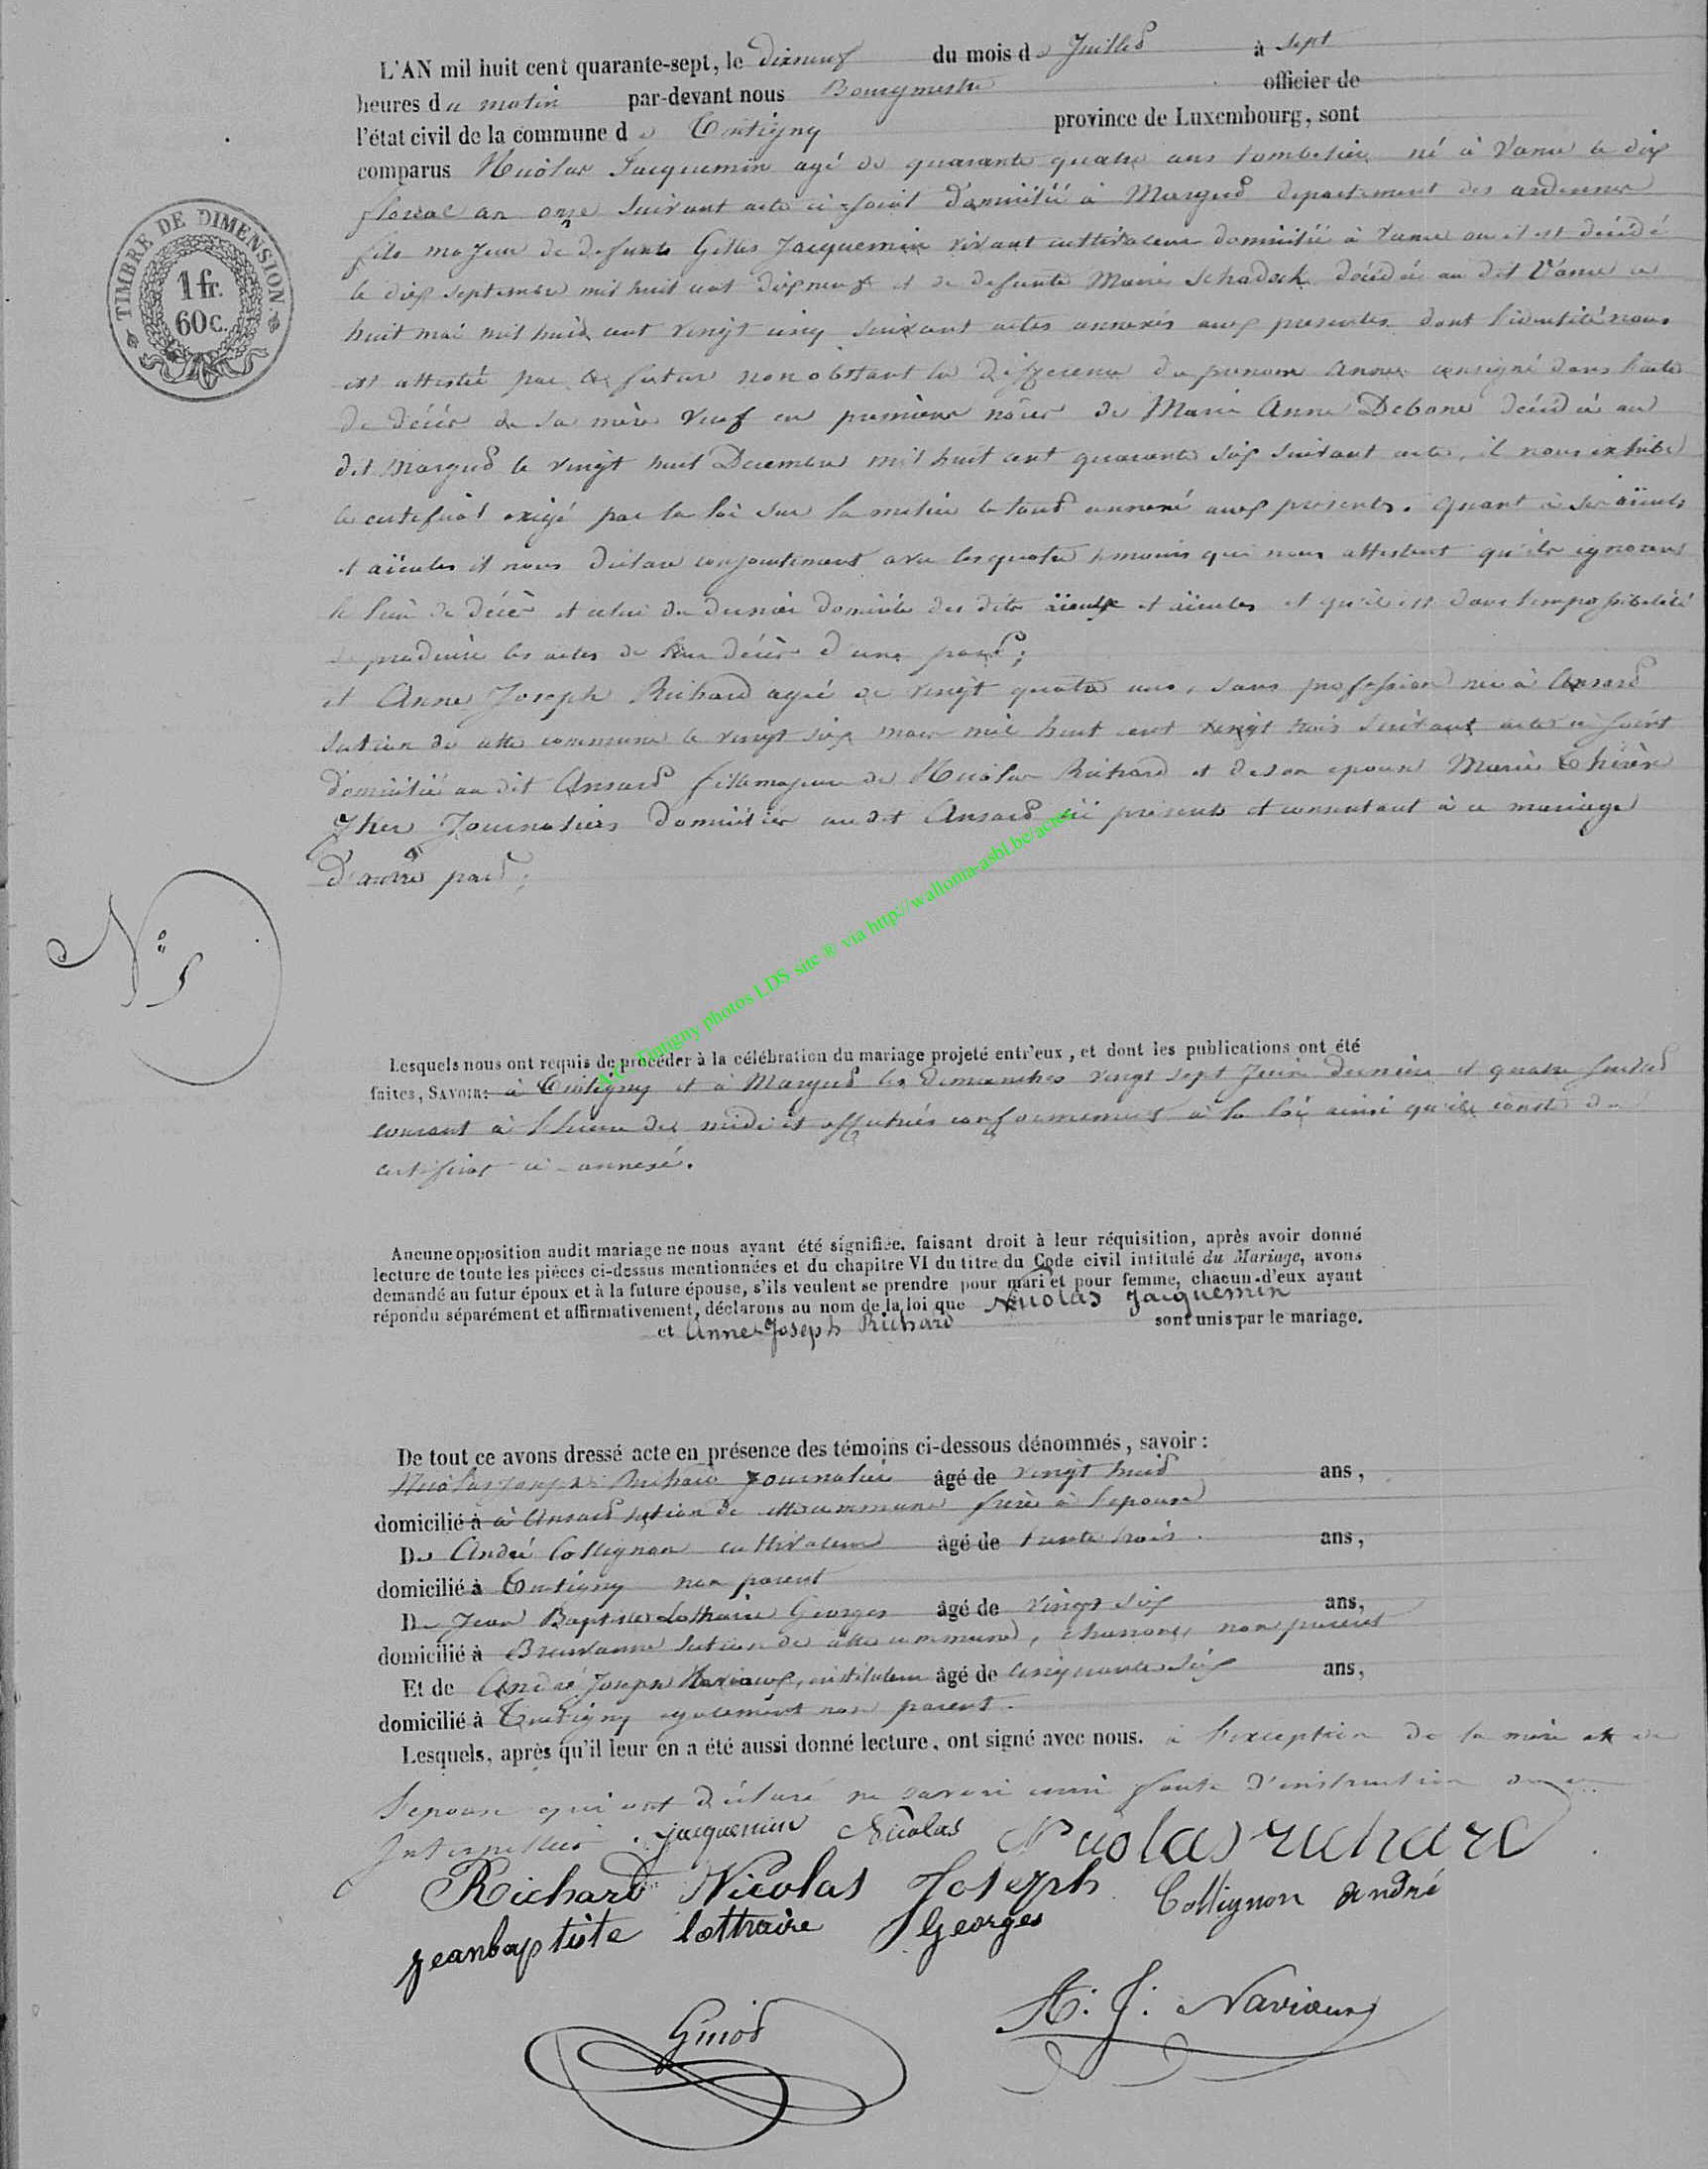 L'AN mil huit cent quarante-sept, le dixneuf du mois de Juillet à sept
heures du matin par-devant nous Bourgmestre officier de
l'état civil de la commune de Tintigny province de Luxembourg, sont
comparus Nicolas Jacquemin agé de quarante quatre ans né à Vance le dix
floréal an onze suivant acte ci-joint domicilié à Margud departement des ardennes
fils majeur de defunts Gilles Jacquemin vivant cultivateur domicilié à Vance ou il est décédé
le dix septembre mil huit cent dixneuf et de defunte Marie Schadeck décédée au dit Vance le
huit mai mil huit cent vingt cinq suivant actes annexés aux presentes dont l'identité nous
est attestée par le futur nonobstant la difference du prenom Anne consigné dans l'acte
de décès de sa mère veuf en premières nôces de Marie Anne Debone décédée au
dit Margud le vingt huit Decembre mil huit cent quarante six suivant acte, il nous exhibe
le certificat exigé par la loi sur la milice le tout annexé aux presentes. Quant à ses aïeuls
et aïeules il nous déclare conjointement avec les quatre temoins qui nous attestent qu'ils ignorent
le lieu de décès et celui du dernier domicile des dits aïeuls et aïeules et qu'il est dans l'impossibilité
de produire les actes de leur décès d'une part;
et Anne Joseph Richard agée de vingt quatre ans, sans profession née à Ansart
section de cette commune le vingt six mars mil huit cent vingt trois suivant acte ci joint
domiciliée au dit Ansart fille majeure de Nicolas Richard et de son epouse Marie Thérèse
Jker Journaliers domiciliés audit Ansart ici présents et consentant à ce mariage
d'autre part;
N° 5
TIMBRE DE DIMENSION
1 fr.
60 c.
A.C. Tintigny photos LDS site ® via http://wallonia-asbl.be/actes
Lesquels nous ont requis de procéder à la célébration du mariage projeté entr'eux, et dont les publications ont été
faites, SAVOIR: à Tintigny et à Margud les Dimanches vingt sept Juin dernier et quatre Juillet
courant à l'heure de midi et affichées conformement à la loi ainsi qu'il conste du
certificat ci-annexé.
Aucune opposition audit mariage ne nous ayant été signifiée, faisant droit à leur réquisition, après avoir donné
lecture de toute les pièces ci-dessus mentionnées et du chapitre VI du titre du Code civil intitulé du Mariage, avons
demandé au futur époux et à la future épouse, s'ils veulent se prendre pour mari et pour femme, chacun d'eux ayant
répondu séparément et affirmativement, déclarons au nom de la loi que Nicolas Jacquemin
et Anne Joseph Richard sont unis par le mariage.
De tout ce avons dressé acte en présence des témoins ci-dessous dénommés, savoir:
Nicolas Joseph Richard Journalier âgé de vingt huit ans,
domicilié à à Ansart section de cette commune frère à l'epouse
De André Collignon cultivateur âgé de trente trois ans,
domicilié à Tintigny non parent
De Jean Baptiste Lothaire Georges âgé de vingt six ans,
domicilié à Breuvanne section de cette commune, charron, non parent
Et de André Joseph Naviaux, instituteur âgé de cinquante six ans,
domicilié à Tintigny egalement non parent.
Lesquels, après qu'il leur en a été aussi donné lecture, ont signé avec nous. à l'exception de la mère et de
l'epouse qui ont déclaré ne savoir ecrire faute d'instruction de ce
Interpellées. Jacquemin Nicolas Nicolas richard
Richard Nicolas Joseph Collignon andré
jeanbaptiste lothaire Georges
Guiot A: J: Naviaux